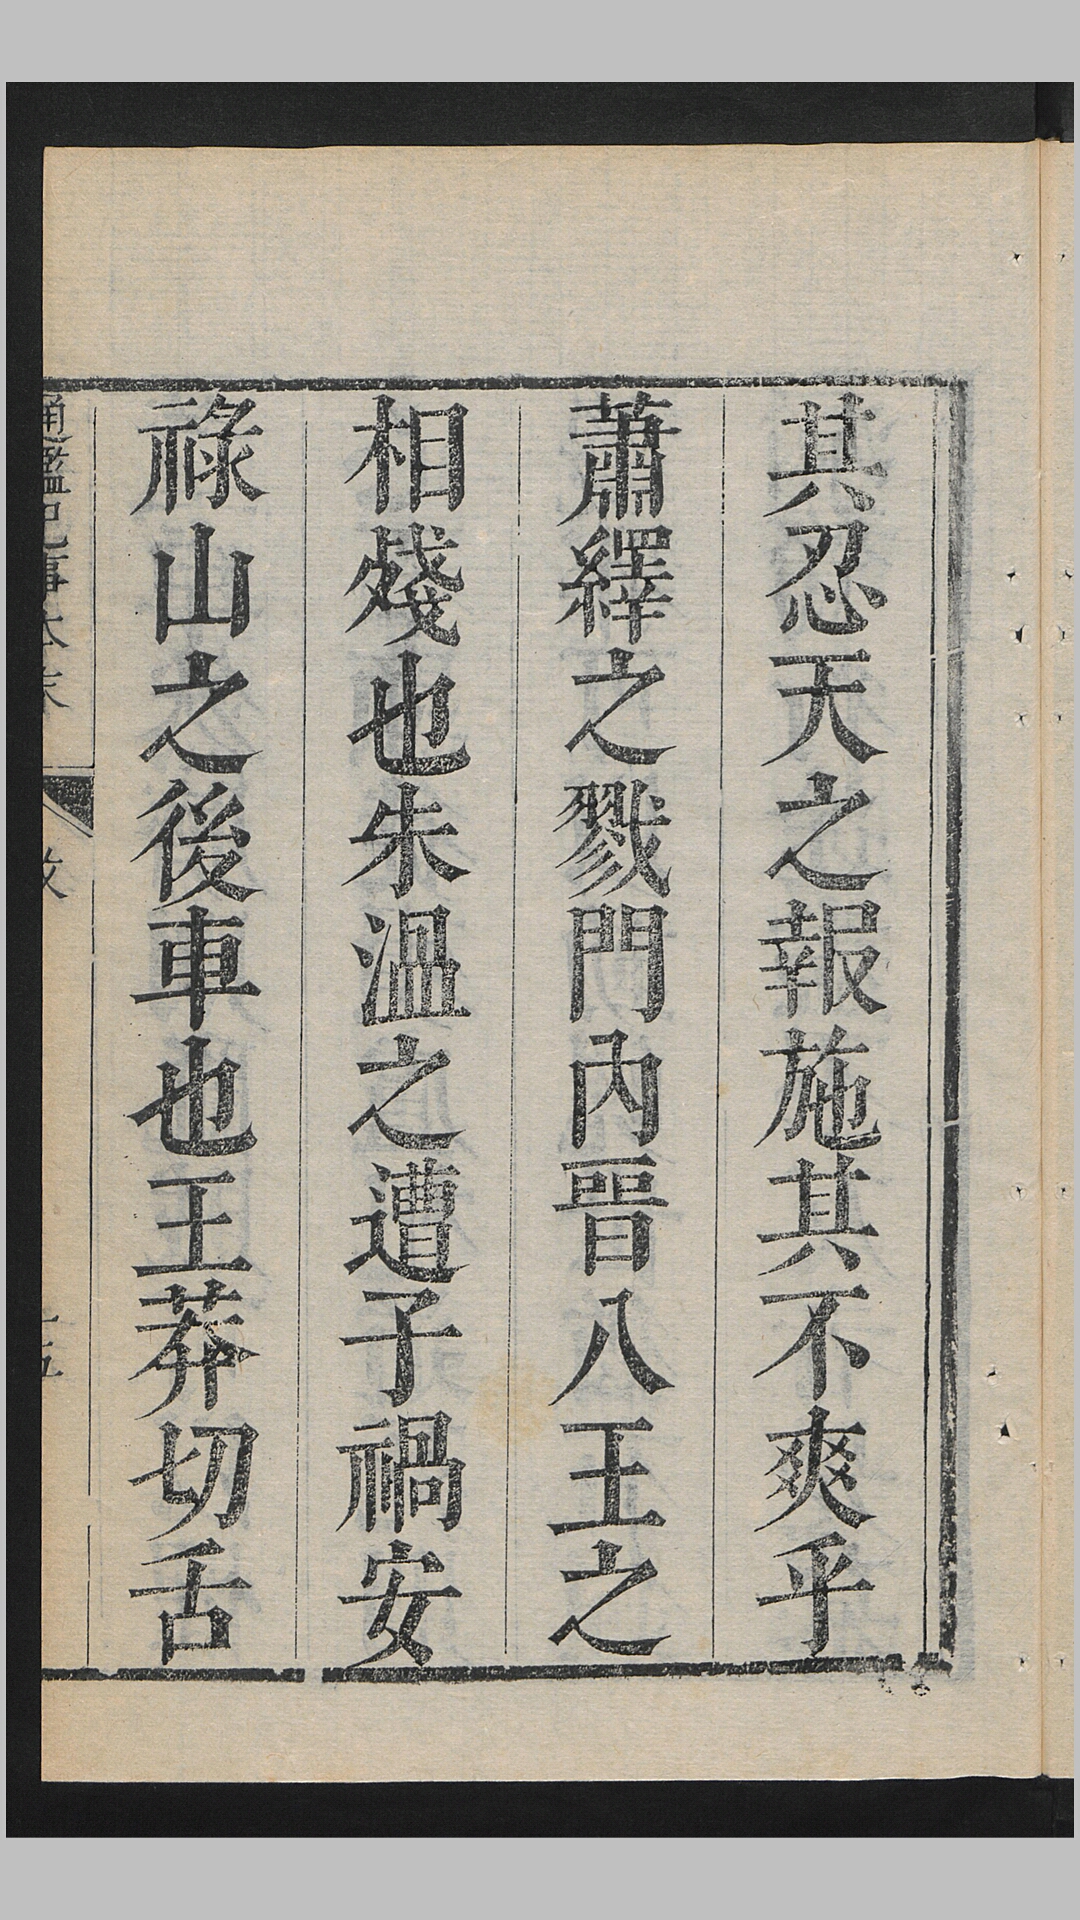 其忍天之報施其不爽乎
蕭繹之戮門內晉八王之
相殘也朱溫之遭子禍安
祿山之後車也王莽切舌
通鑑紀事本末
敘
五